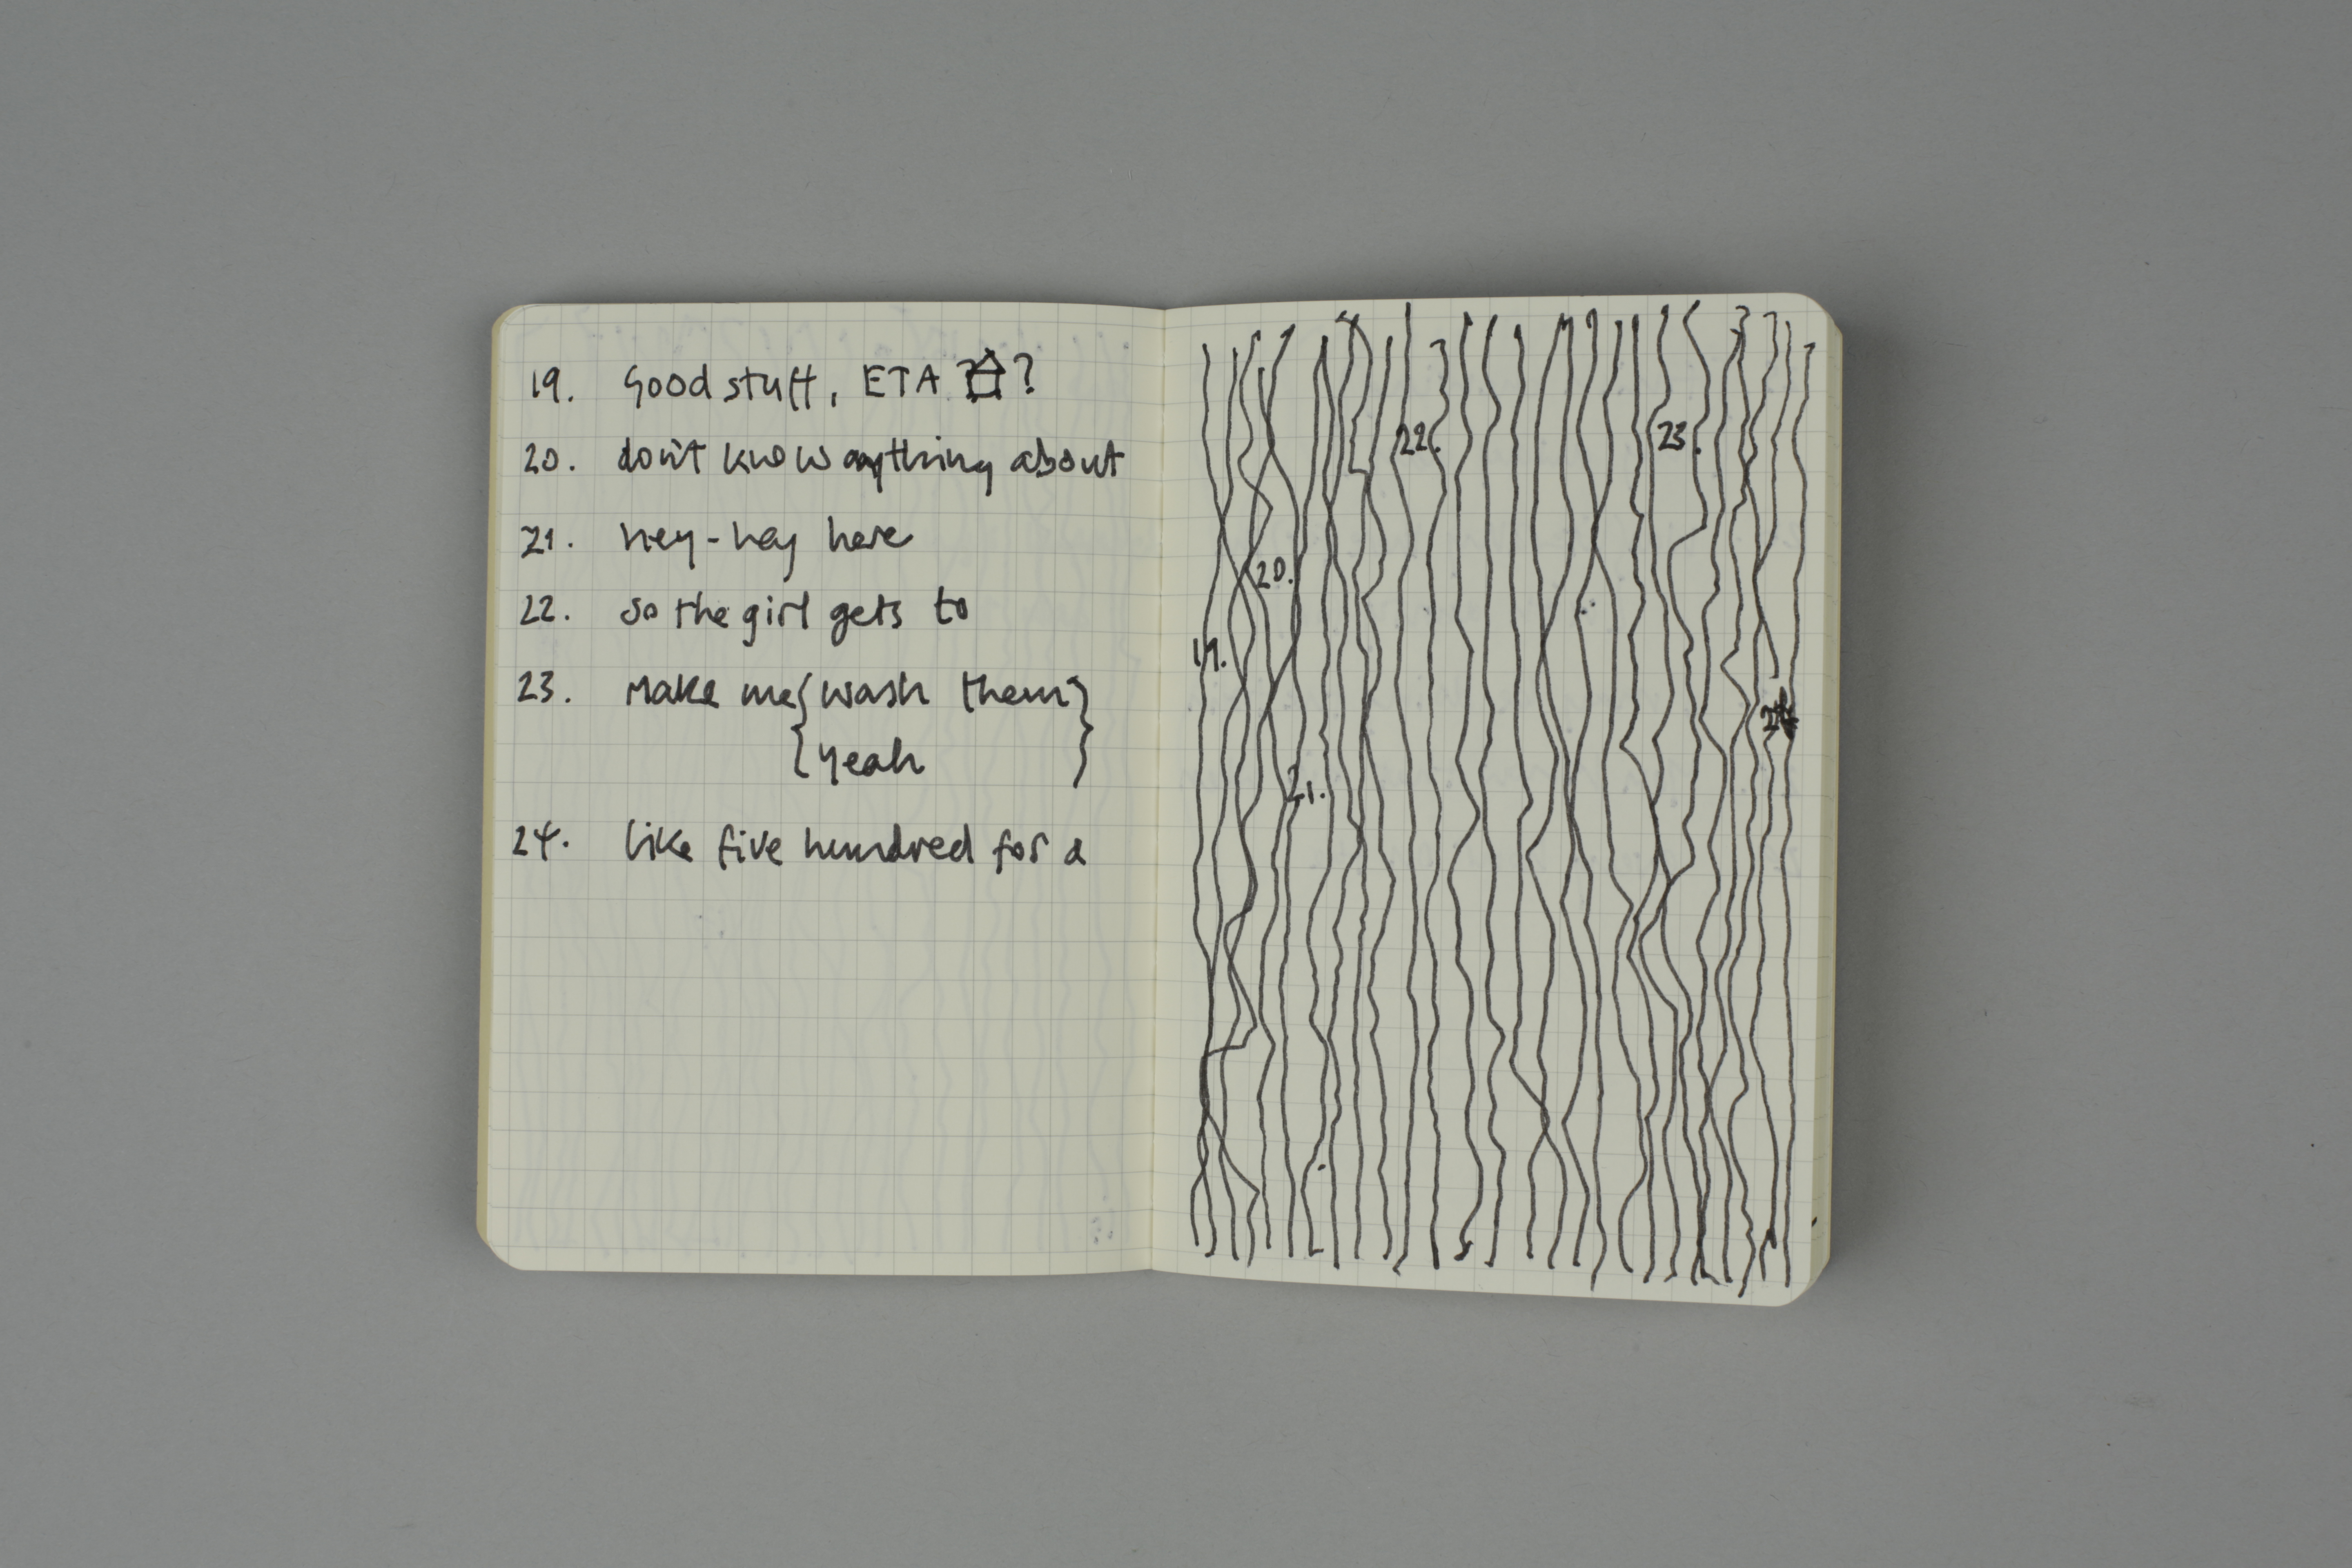 19. Good stuff, ETA ?
20. don't know anything about
21. hey-hey here
22. so the girl gets to
23. make me { wash them }
{ yeah }
24. like five hundred for a
22.
23.
20.
19.
24
21.